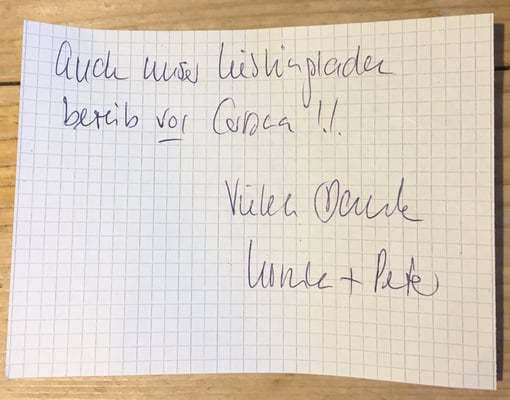 Auch unser Lieblingsladen
bereits vor Corona !!
Vielen Dank
+ Peter